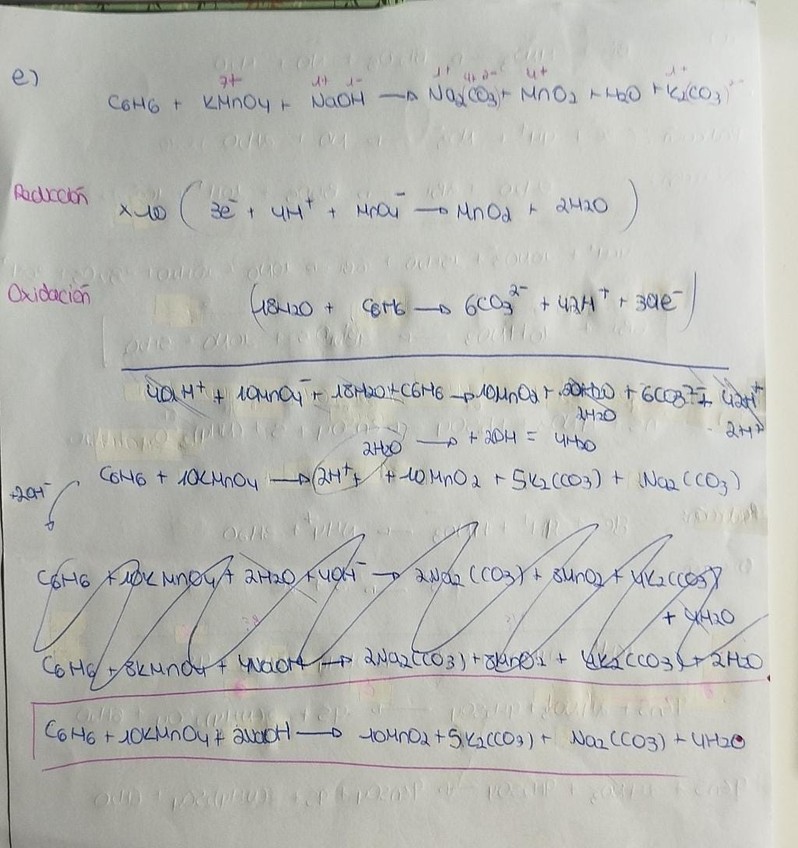 e)
7+ 1+ 1- 1+ 4+ 2- 4+ 1+ 2-
C6H6 + KMnO4 + NaOH → Na2(CO3) + MnO2 + H2O + K2(CO3)
Reducción x10 ( 3e- + 4H+ + MnO4- → MnO2 + 2H2O )
Oxidación (18H2O + C6H6 → 6CO3 2- + 42H+ + 30e-)
40H+ + 10MnO4- + 18H2O + C6H6 → 10MnO2 + 20H2O + 6CO3 2- + 42H+
2H2O 2H+
2H2O → + 2OH = 4H2O
C6H6 + 10KMnO4 → 2H+ + + 10MnO2 + 5K2(CO3) + Na2(CO3)
+2OH-
C6H6 + 10KMnO4 + 2H2O + 4OH- → 2Na2(CO3) + 8MnO2 + 4K2(CO3)
+ 4H2O
C6H6 + 8KMnO4 + 4NaOH → 2Na2(CO3) + 8MnO2 + 4K2(CO3) + 2H2O
C6H6 + 10KMnO4 + 2NaOH → 10MnO2 + 5K2(CO3) + Na2(CO3) + 4H2O